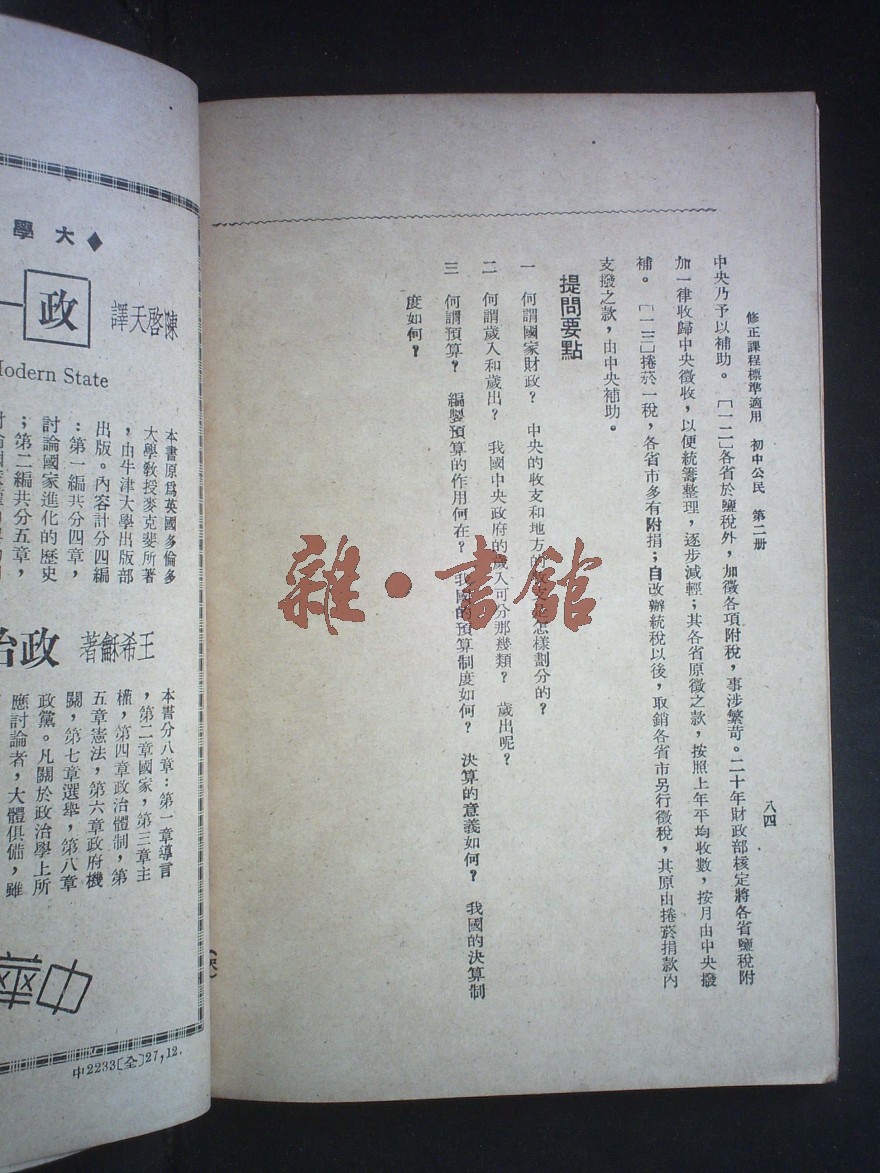 修正課程標準適用 初中公民 第二册
八四
中央乃予以補助。〔一二〕各省於鹽稅外，加徵各項附稅，事涉繁苛。二十年財政部核定將各省鹽稅附
加一律收歸中央徵收，以便統籌整理，逐步減輕；其各省原徵之款，按照上年平均收數，按月由中央撥
補。〔一三〕捲菸一稅，各省市多有附捐；自改辦統稅以後，取銷各省市另行徵稅，其原由捲菸捐款內
支撥之款，由中央補助。
提問要點
一 何謂國家財政？ 中央的收支和地方的收支是怎樣劃分的？
二 何謂歲入和歲出？ 我國中央政府的歲入可分那幾類？ 歲出呢？
三 何謂預算？ 編製預算的作用何在？ 我國的預算制度如何？ 決算的意義如何？ 我國的決算制
度如何？
雜·書館
◆大學
政
陳啓天譯
Modern State
本書原爲英國多倫多
大學敎授麥克斐所著
，由牛津大學出版部
出版。內容計分四編
：第一編共分四章，
討論國家進化的歷史
；第二編共分五章，
政治
王希龢著
本書分八章：第一章導言
，第二章國家，第三章主
權，第四章政治體制，第
五章憲法，第六章政府機
關，第七章選舉，第八章
政黨。凡關於政治學上所
應討論者，大體俱備，雖
中華
中2233〔全〕27,12.